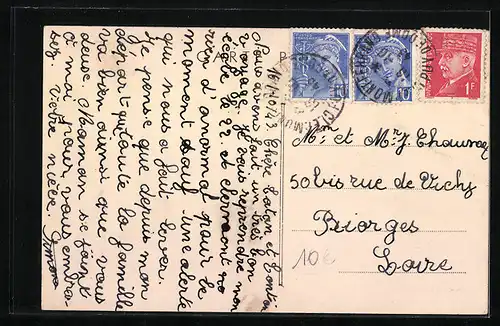 16/10/43
Chère Tatan et Tonton
Nous avons fait un très bon
voyage. Je vais reprendre mon
école le 22. et ici rien
d'anormal pour le
moment sauf une alerte
qui nous a fait lever.
Je pense que depuis mon
départ toute la famille
va bien ainsi que vous
deux. Maman se joint
à moi pour vous embras
ser. Votre nièce. Simone
Mr et Mr J. Chauvrey
50 bis rue de Vichy
Riorges
Loire
10€
CLERMONT-FERRAND
PUY-DE-DOME
1F